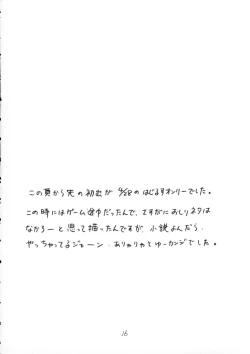 この頁から先の初出が 6/28のはじるすオンリーでした。
この時にはゲーム途中だったんで、さすがにおしりネタは
なかろーと思って描ったんですが、小説よんだら、
やっちゃってるジェーン。ありゃりゃとゆーカンジでした。
16